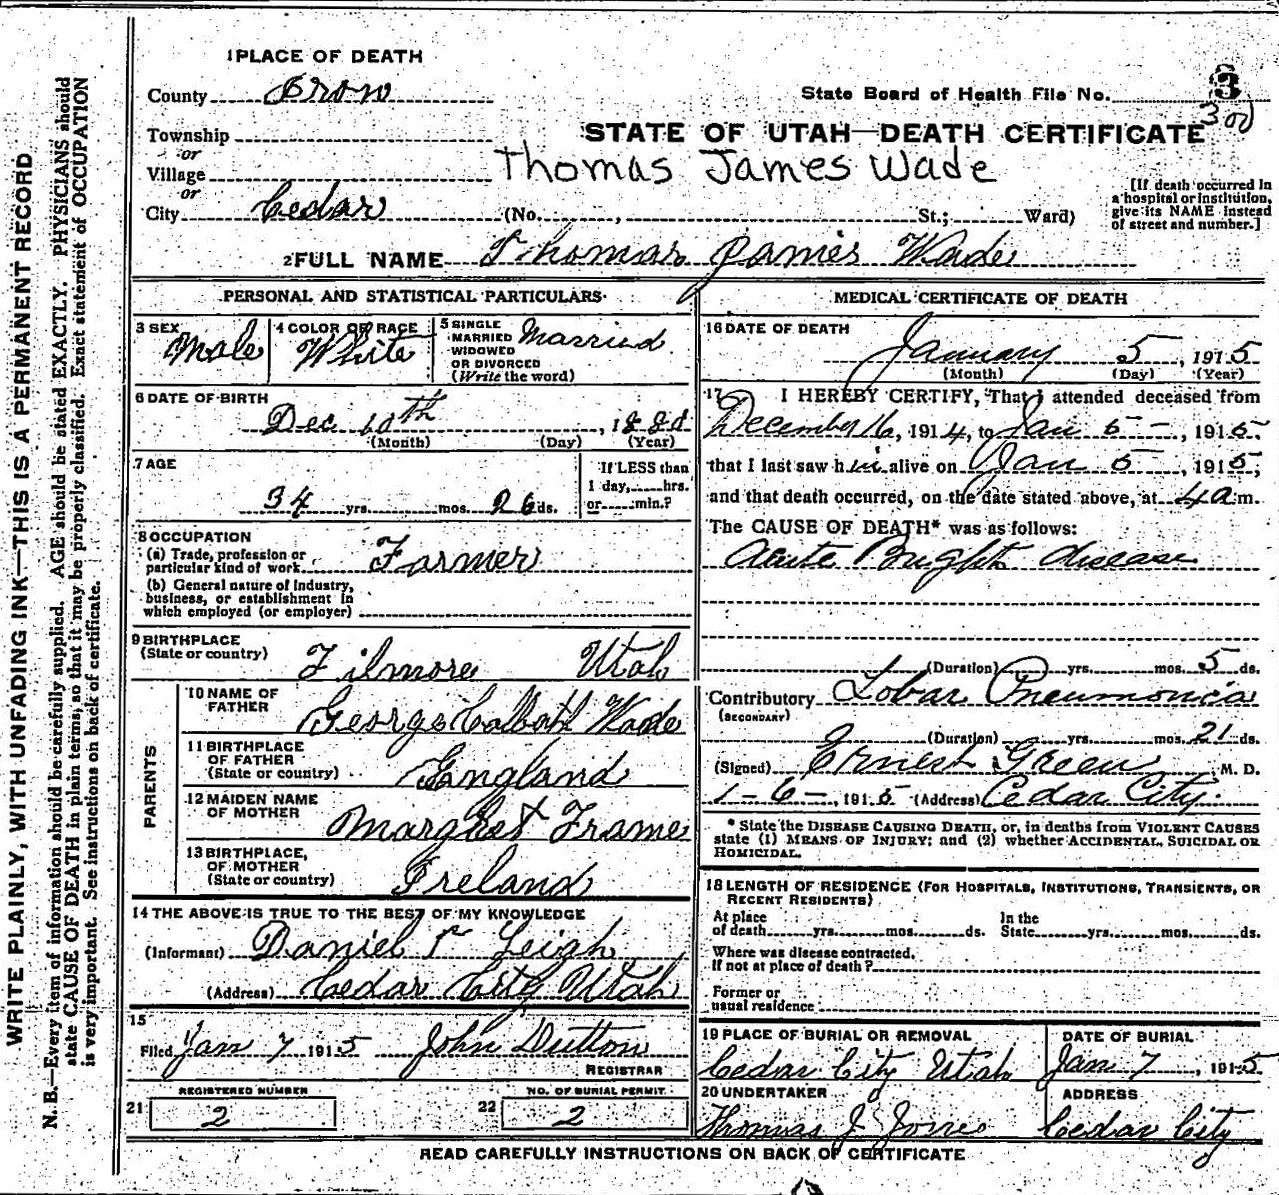 WRITE PLAINLY, WITH UNFADING INK—THIS IS A PERMANENT RECORD
N. B.—Every item of information should be carefully supplied. AGE should be stated EXACTLY. PHYSICIANS should
state CAUSE OF DEATH in plain terms, so that it may be properly classified. Exact statement of OCCUPATION
is very important. See instructions on back of certificate.
1 PLACE OF DEATH
County Iron
State Board of Health File No. 3
300
Township
or
STATE OF UTAH—DEATH CERTIFICATE
Village
Thomas James Wade
or
City Cedar (No. , St.; Ward)
[If death occurred in
a hospital or institution,
give its NAME instead
of street and number.]
2 FULL NAME Thomas James Wade
PERSONAL AND STATISTICAL PARTICULARS
3 SEX Male
4 COLOR OR RACE White
5 SINGLE
MARRIED
WIDOWED
OR DIVORCED
(Write the word)
Married
6 DATE OF BIRTH
Dec 10th, 1880
(Month) (Day) (Year)
7 AGE
34 yrs. mos. 26 ds.
If LESS than
1 day, hrs.
or min.?
8 OCCUPATION
(a) Trade, profession or
particular kind of work Farmer
(b) General nature of industry,
business, or establishment in
which employed (or employer)
9 BIRTHPLACE
(State or country) Filmore Utah
PARENTS
10 NAME OF
FATHER George Wade
11 BIRTHPLACE
OF FATHER
(State or country) England
12 MAIDEN NAME
OF MOTHER Margret Frame
13 BIRTHPLACE,
OF MOTHER
(State or country) Ireland
14 THE ABOVE IS TRUE TO THE BEST OF MY KNOWLEDGE
(Informant) Daniel T Leigh
(Address) Cedar City Utah
15
Filed Jan 7 1915 John Dutton
REGISTRAR
REGISTERED NUMBER
21 2
NO. OF BURIAL PERMIT
22 2
MEDICAL CERTIFICATE OF DEATH
16 DATE OF DEATH
January 5, 1915
(Month) (Day) (Year)
17 I HEREBY CERTIFY, That I attended deceased from
December 16, 1914, to Jan 5 -, 1915,
that I last saw him alive on Jan 5, 1915,
and that death occurred, on the date stated above, at 4 a m.
The CAUSE OF DEATH* was as follows:
Acute Brights disease
(Duration) yrs. mos. 5 ds.
Contributory Lobar Pneumonia
(SECONDARY)
(Duration) yrs. mos. 21 ds.
(Signed) Ernest Green M. D.
1-6-, 1915 (Address) Cedar City.
* State the DISEASE CAUSING DEATH, or, in deaths from VIOLENT CAUSES
state (1) MEANS OF INJURY; and (2) whether ACCIDENTAL, SUICIDAL OR
HOMICIDAL.
18 LENGTH OF RESIDENCE (FOR HOSPITALS, INSTITUTIONS, TRANSIENTS, OR
RECENT RESIDENTS)
At place
of death yrs. mos. ds.
In the
State yrs. mos. ds.
Where was disease contracted,
if not at place of death?
Former or
usual residence
19 PLACE OF BURIAL OR REMOVAL
Cedar City Utah
DATE OF BURIAL
Jan 7, 1915
20 UNDERTAKER
Thomas J Jones
ADDRESS
Cedar City
READ CAREFULLY INSTRUCTIONS ON BACK OF CERTIFICATE